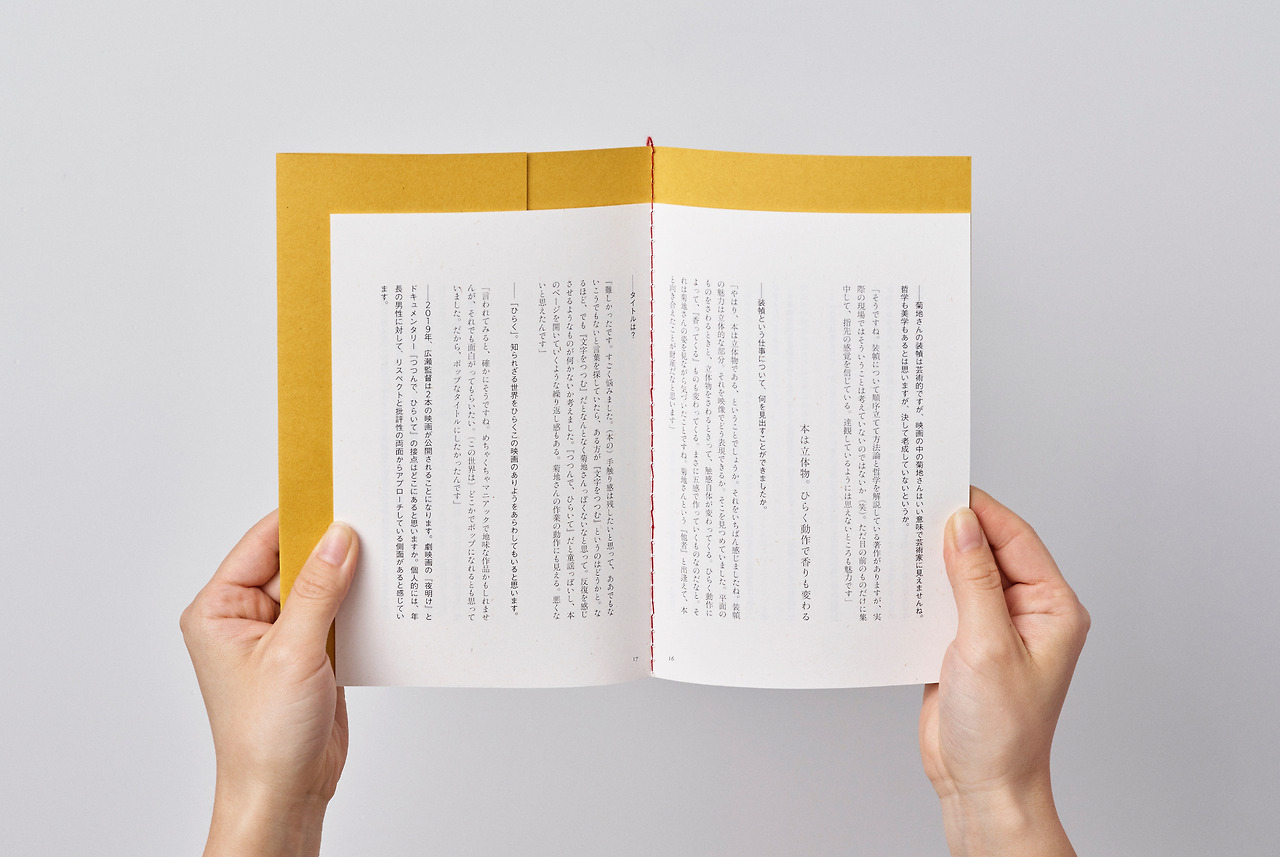 ――菊地さんの装幀は芸術的ですが、映画の中の菊地さんはいい意味で芸術家に見えませんね。
哲学も美学もあるとは思いますが、決して老成していないというか。
「そうですね。装幀について順序立てて方法論と哲学を解説している著作がありますが、実
際の現場ではそういうことは考えていないのではないか（笑）。ただ目の前のものだけに集
中して、指先の感覚を信じている。達観しているようには思えないところも魅力です」
本は立体物。ひらく動作で香りも変わる
――装幀という仕事について、何を見出すことができましたか。
「やはり、本は立体物である、ということでしょうか。それをいちばん感じましたね。装幀
の魅力は立体的な部分。それを映像でどう表現できるか、そこを見つめていました。平面の
ものをさわるときと、立体物をさわるときって、触感自体が変わってくる。ひらく動作に
よって、『香ってくる』ものも変わってくる。まさに五感で作っていくものなのだなと。そ
れは菊地さんの姿を見ながら気づいたことですね。菊地さんという『他者』と出逢えて、本
と向き合えたことが財産だなと思います」
16
――タイトルは？
「難しかったです。すごく悩みました。（本の）手触り感は残したいと思って、ああでもな
いこうでもないと言葉を探していたら、ある方が『文字をつつむ』というのはどうかと。な
るほど、でも『文字をつつむ』だとなんとなく菊地さんっぽくないなと思って。反復を感じ
させるようなものが何かないか考えました。『つつんで、ひらいて』だと童謡っぽいし、本
のページを開いていくような繰り返し感もある。菊地さんの作業の動作にも見える。悪くな
いと思えたんです」
――「ひらく」。知られざる世界をひらくこの映画のありようをあらわしてもいると思います。
「言われてみると、確かにそうですね。めちゃくちゃマニアックで地味な作品かもしれませ
んが、それでも面白がってもらいたい。（この世界は）どこかでポップになれるとも思って
いました。だから、ポップなタイトルにしたかったんです」
――２０１９年、広瀬監督は２本の映画が公開されることになります。劇映画の『夜明け』と
ドキュメンタリー『つつんで、ひらいて』の接点はどこにあると思いますか。個人的には、年
長の男性に対して、リスペクトと批評性の両面からアプローチしている側面があると感じてい
ます。
17